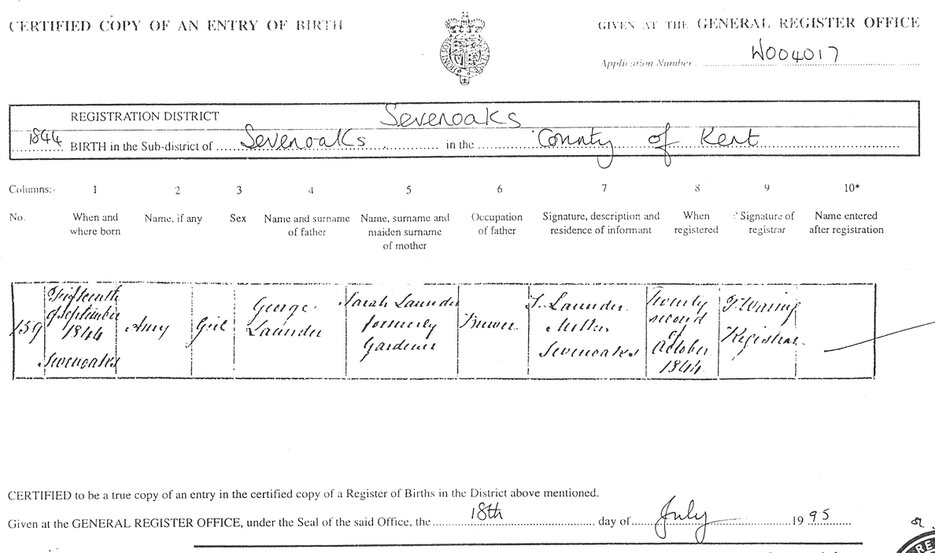 CERTIFIED COPY OF AN ENTRY OF BIRTH
GIVEN AT THE GENERAL REGISTER OFFICE
Application Number W004017
REGISTRATION DISTRICT Sevenoaks
1844 BIRTH in the Sub-district of Sevenoaks in the County of Kent
Columns:- 1 2 3 4 5 6 7 8 9 10*
No. When and where born Name, if any Sex Name and surname of father Name, surname and maiden surname of mother Occupation of father Signature, description and residence of informant When registered Signature of registrar Name entered after registration
159
Fifteenth
of September
1844
Sevenoaks
Amy
Girl
George
Launder
Sarah Launder
formerly
Gardener
Brewer
S. Launder
Mother
Sevenoaks
Twenty
second
of
October
1844
Waring
Registrar
CERTIFIED to be a true copy of an entry in the certified copy of a Register of Births in the District above mentioned.
Given at the GENERAL REGISTER OFFICE, under the Seal of the said Office, the 18th day of July 1995